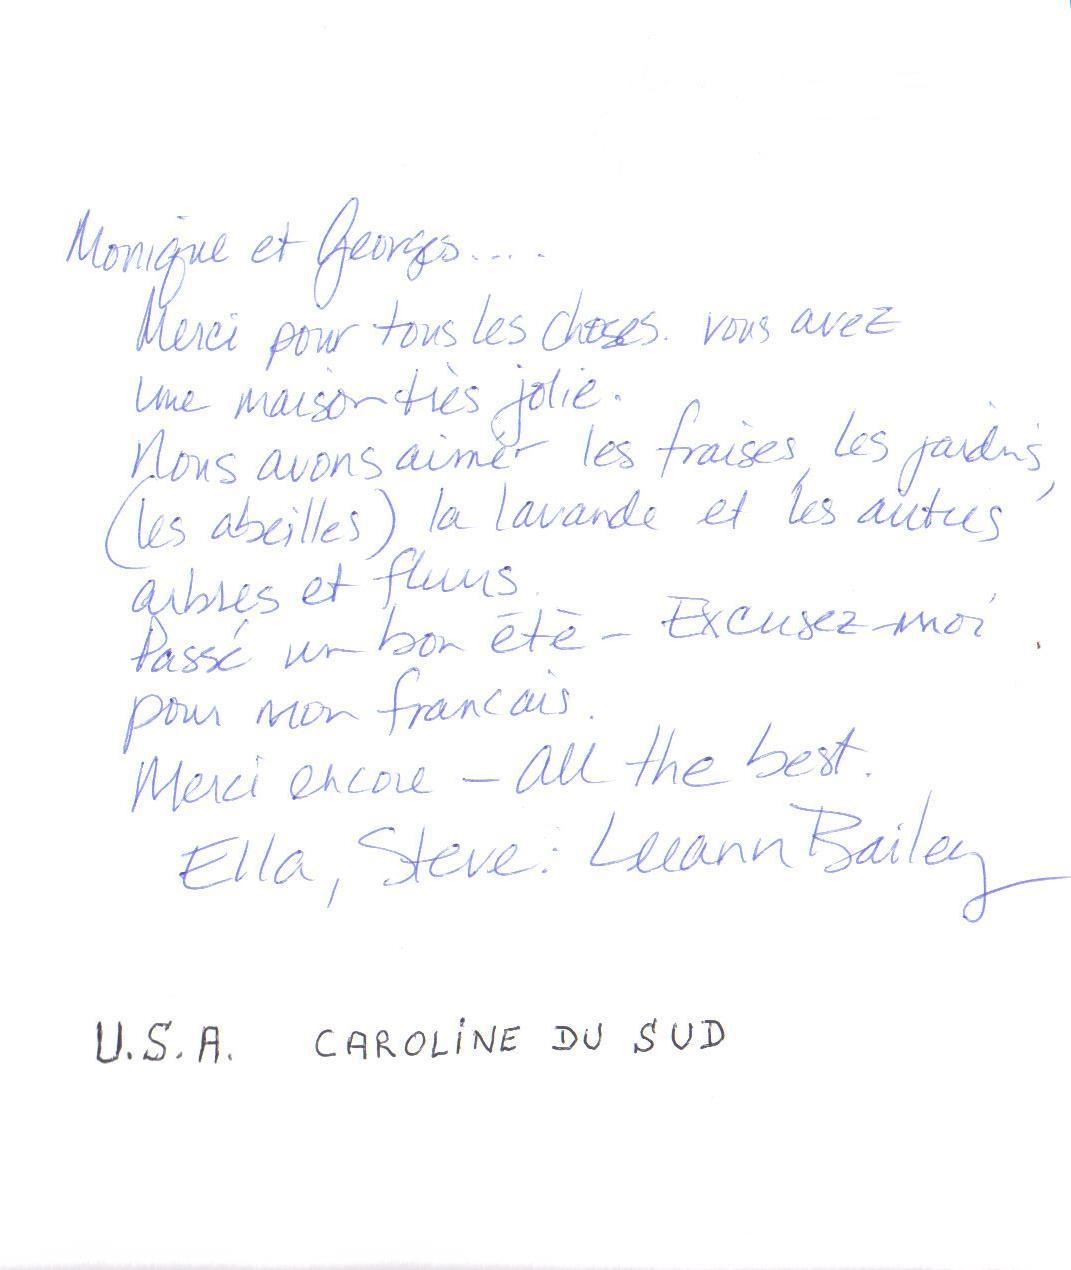 Monique et Georges....
Merci pour tous les choses. vous avez
une maison très jolie.
Nous avons aimer les fraises, les jardins,
(les abeilles) la lavande et les autres
arbres et fleurs.
Passé un bon été - Excusez-moi
pour mon francais.
Merci encore - all the best.
Ella, Steve: Lueann Bailey
U.S.A. CAROLINE DU SUD